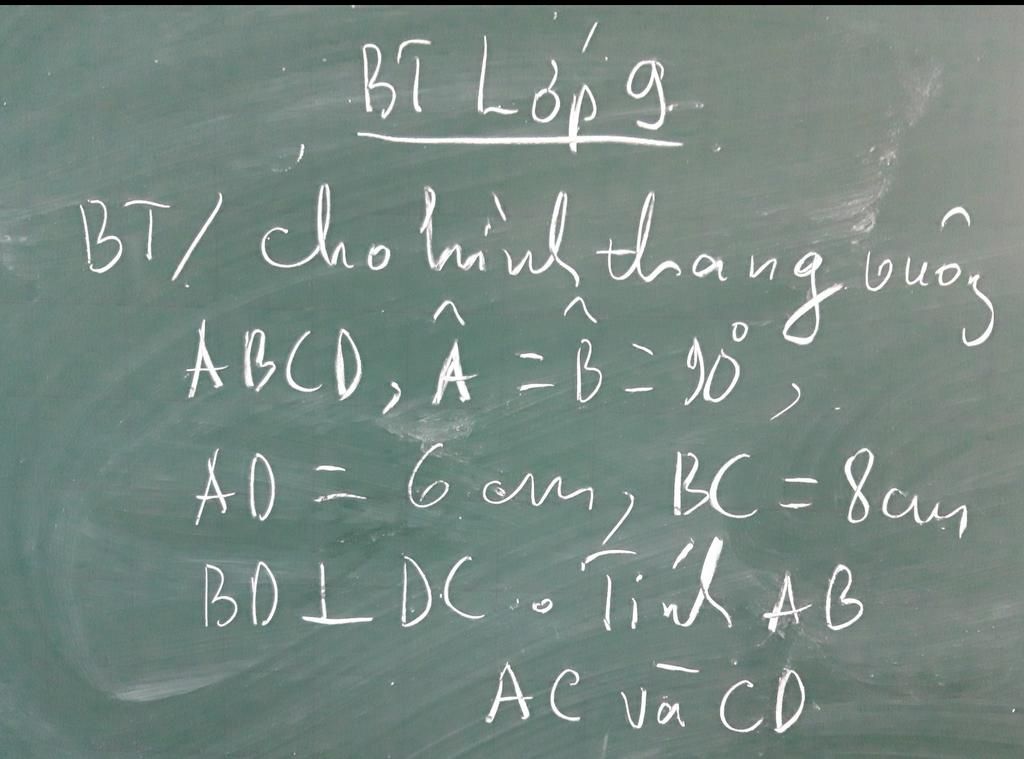 BT Lớp 9
BT/ cho hình thang vuông
ABCD, Â = B̂ = 90°,
AD = 6 cm, BC = 8cm
BD ⊥ DC. Tính AB
AC và CD